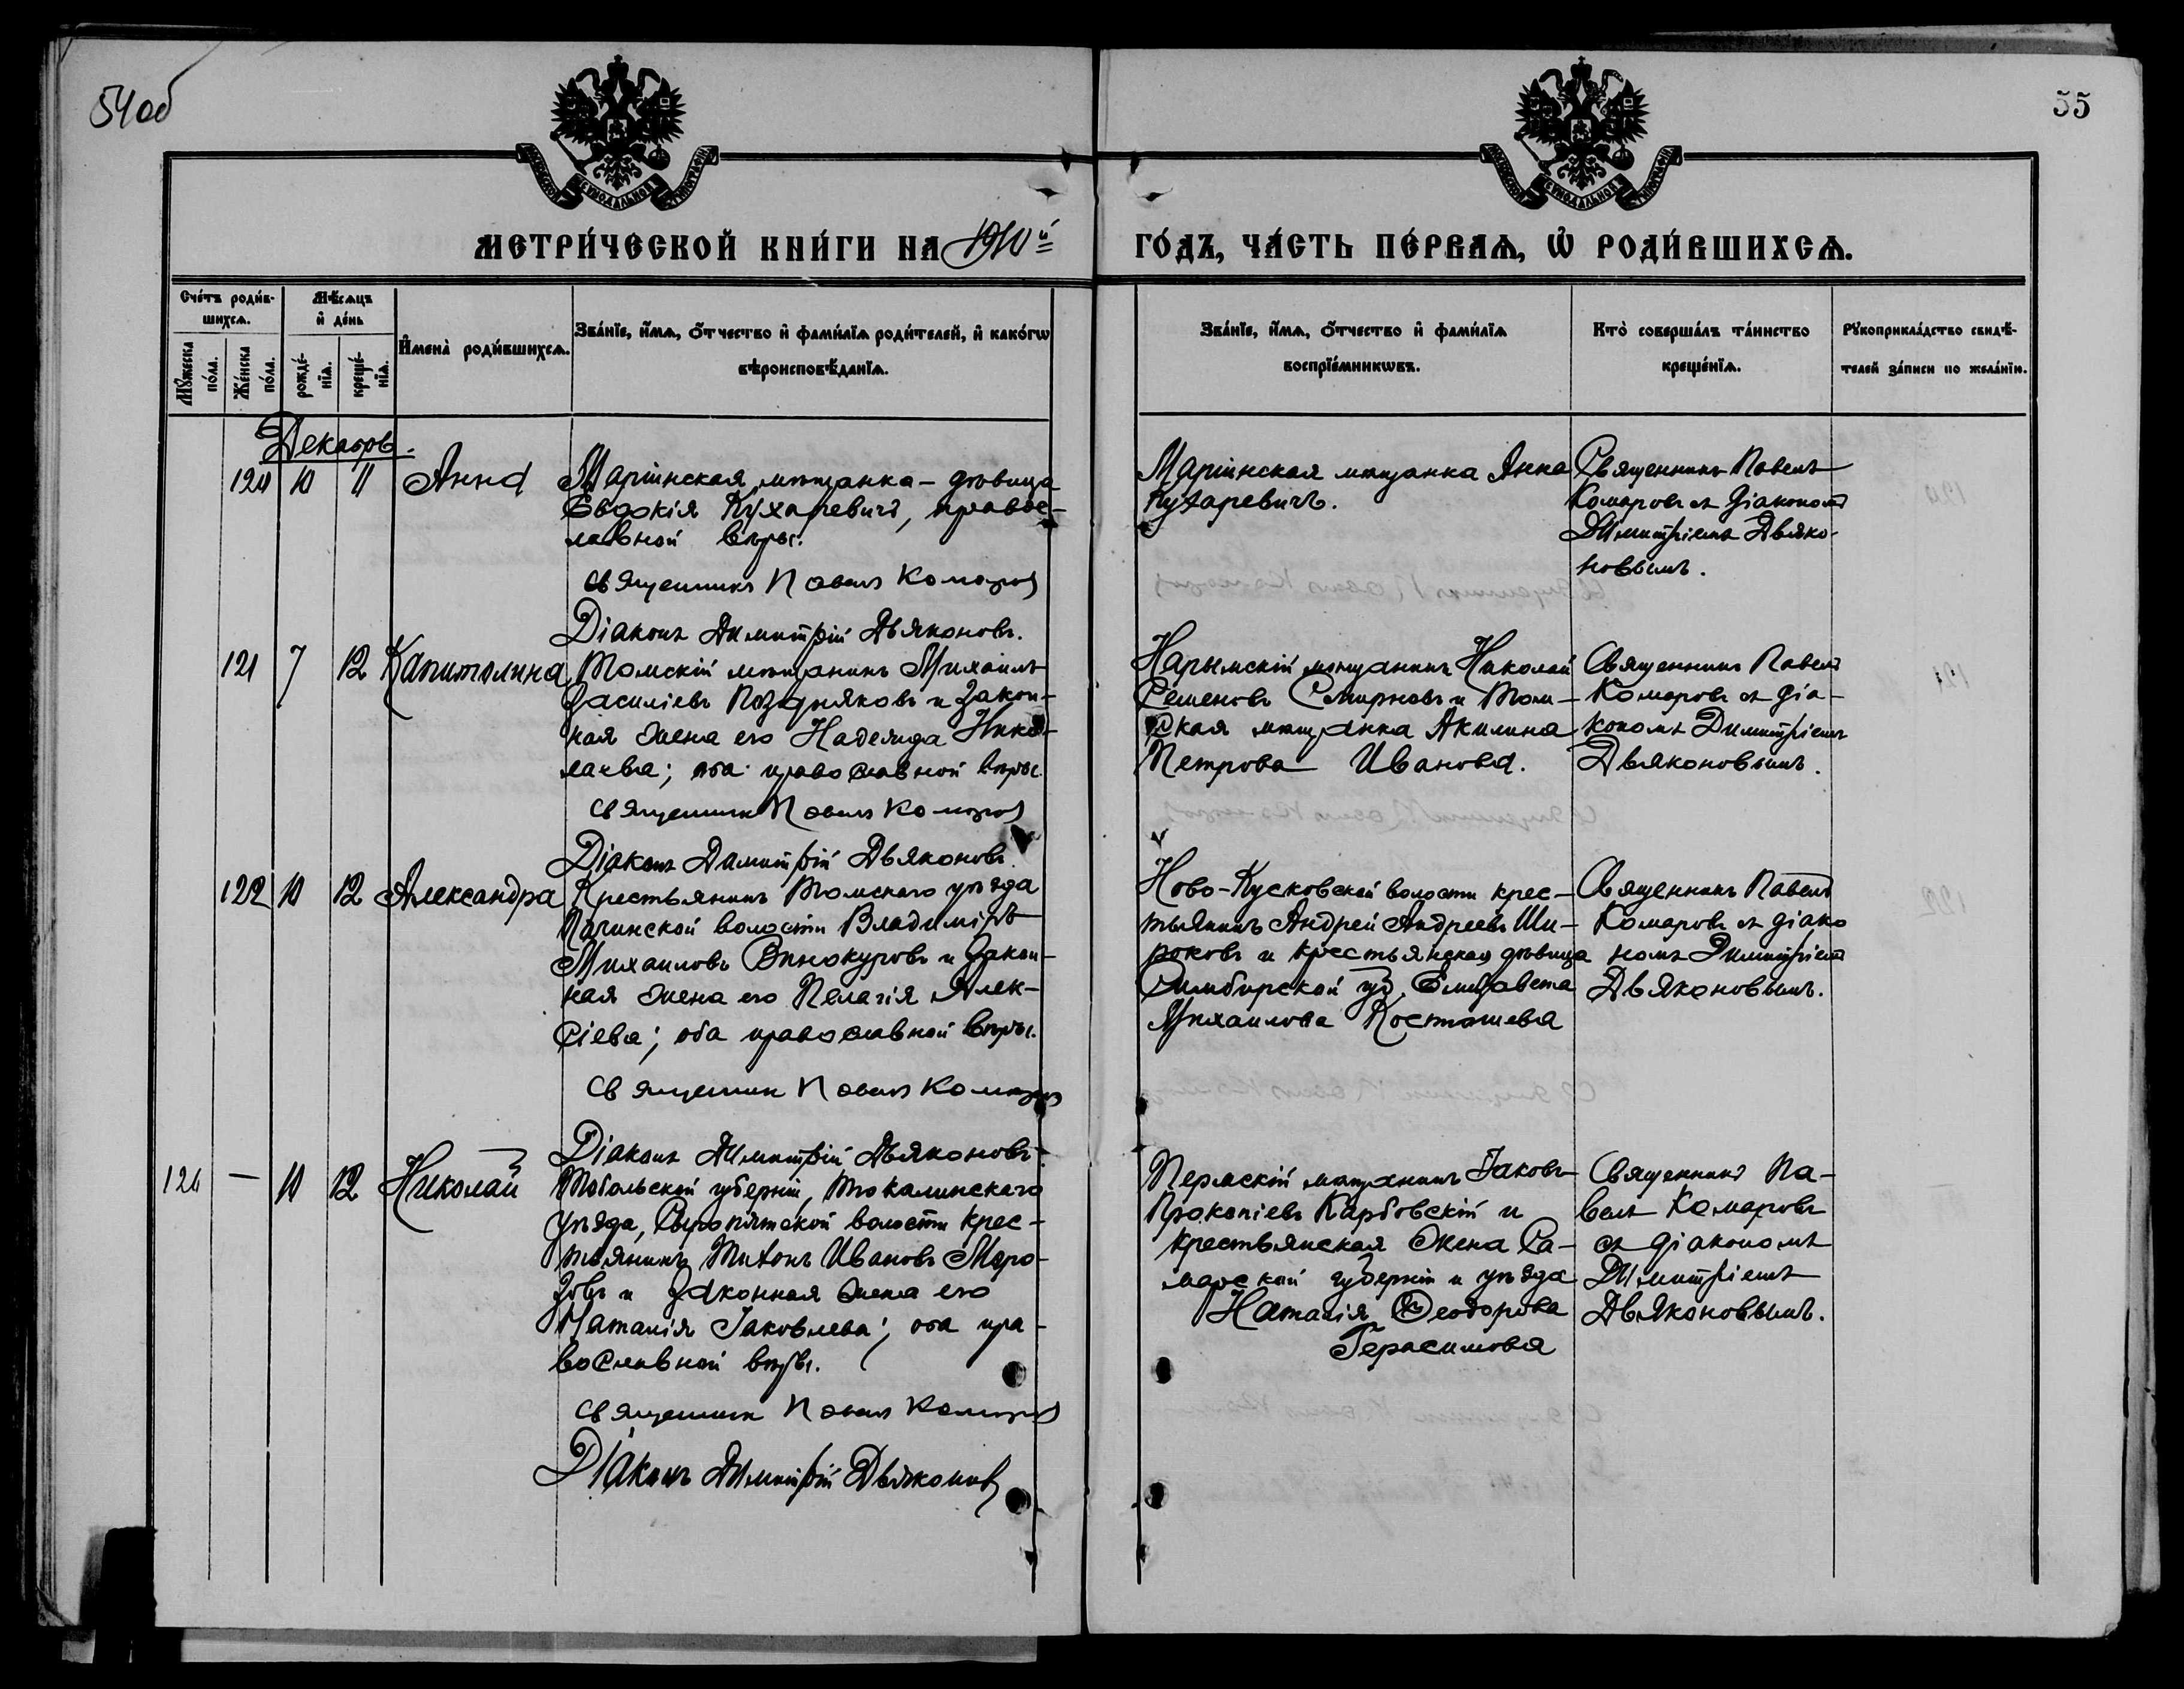 54об
55
МЕТРИ́ЧЕСКОЙ КНИ́ГИ НА 1910й
ГО́ДЪ, ЧА́СТЬ ПЕ́РВАѦ, Ѡ҆ РОДИ́ВШИХСѦ.
Сче́тъ роди́в-
шихсѧ.
Мꙋ́жеска
по́ла.
Же́нска
по́ла.
Мѣ́сѧцъ
и҆ де́нь
рожде́-
нїѧ.
креще́-
нїѧ.
И҆мена̀ роди́вшихсѧ.
Зва́нїе, и҆́мѧ, ѻ҆́тчество и҆ фами́лїѧ роди́телей, и҆ како́гѡ
вѣроисповѣ́данїѧ.
Зва́нїе, и҆́мѧ, ѻ҆́тчество и҆ фами́лїѧ
воспрїе́мникѡвъ.
Кто̀ соверша́лъ та́инство
креще́нїѧ.
Рꙋкоприкла́дство свидѣ́-
телей за́писи по жела́нїю.
Декабрь.
120 10 11 Анна
Маріинская мѣщанка - дѣвица
Евдокія Кухаревичъ, правос-
лавной вѣры.
Священникъ Павелъ Комаровъ
Діаконъ Димитрій Дьяконовъ.
Маріинская мѣщанка Анна
Кухаревичъ.
Священникъ Павелъ
Комаровъ съ діакономъ
Димитріемъ Дьяко-
новымъ.
121 7 12 Капитолина
Томскій мѣщанинъ Михаилъ
Василіевъ Поздняковъ и закон-
ная жена его Надежда Нико-
лаева; оба православной вѣры.
Священникъ Павелъ Комаровъ
Діаконъ Димитрій Дьяконовъ.
Нарымскій мѣщанинъ Николай
Семеновъ Смирновъ и Том-
ская мѣщанка Акилина
Петрова Иванова.
Священникъ Павелъ
Комаровъ съ діа-
кономъ Димитріемъ
Дьяконовымъ.
122 10 12 Александра
Крестьянинъ Томскаго уѣзда
Пачинской волости Владиміръ
Михаиловъ Винокуровъ и закон-
ная жена его Пелагія Алек-
сіева; оба православной вѣры.
Священникъ Павелъ Комаровъ
Діаконъ Димитрій Дьяконовъ.
Ново-Кусковской волости крес-
тьянинъ Андрей Андреевъ Ши-
роковъ и крестьянская дѣвица
Симбирской губ. Елизавета
Михаилова Костюшева
Священникъ Павелъ
Комаровъ съ діако
номъ Димитріемъ
Дьяконовымъ.
126 — 10 12 Николай
Тобольской губерніи, Тюкалинскаго
уѣзда, Сыропятской волости крес-
тьянинъ Титъ Ивановъ Моро-
зовъ и законная жена его
Наталія Іаковлева; оба пра-
вославной вѣры.
Священникъ Павелъ Комаровъ
Діаконъ Димитрій Дьяконовъ
Пермскій мѣщанинъ Іаковъ
Прокопіевъ Карбовскій и
крестьянская жена Са-
марской губерніи и уѣзда
Наталія Ѳеодорова
Герасимова
Священникъ Па-
велъ Комаровъ
съ діакономъ
Димитріемъ
Дьяконовымъ.